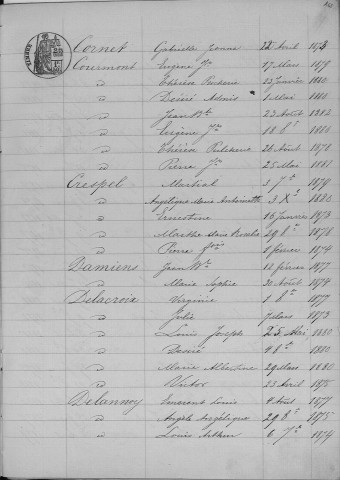 Cornet Gabrielle Jeanne 22 Avril 1873
Courmont Eugène Jh 17 Mars 1879
d° Thérèse 23 Janvier 1880
d° Désiré Adonis 1 Mai
d° Jean Bte 23 Août 1882
d° Eugène 18 8re
d° Thérèse 26 Août 1878
d° Pierre Jh 25 Mai 1881
Crespel Martial 3 7re 1879
d° Angélique Marie Antoinette 3 Xre 1880
d° Ernestine 16 Janvier 1873
d° Marthe Marie 29 8re 1878
d° Pierre 1 février 1874
Damiens Jean Bte 12 février 1877
d° Marie Sophie 30 Août 1874
Delacroix Virginie 1 8re 1877
d° Julie 7 Mars 1873
d° Louis Joseph 25 Mai 1880
d° Désiré 4 8re 1880
d° Marie Albertine 29 Mars 1880
d° Victor 23 Avril 1875
Delannoy Louis 4 Août 1877
d° Angèle Angélique 29 8re 1875
d° Louis Arthur 6 7re 1874